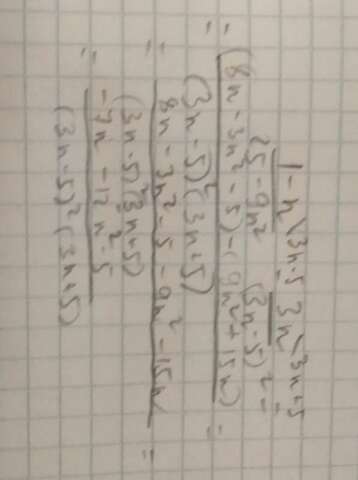 1-n\3n-5 3n\3n+5
25-9n² (3n-5)² =
= (8n-3n²-5)-(9n²+15n) =
(3n-5)²(3n+5)
= 8n-3n²-5-9n²-15n =
(3n-5)²(3n+5)
= -7n-12n²-5
(3n-5)²(3n+5)